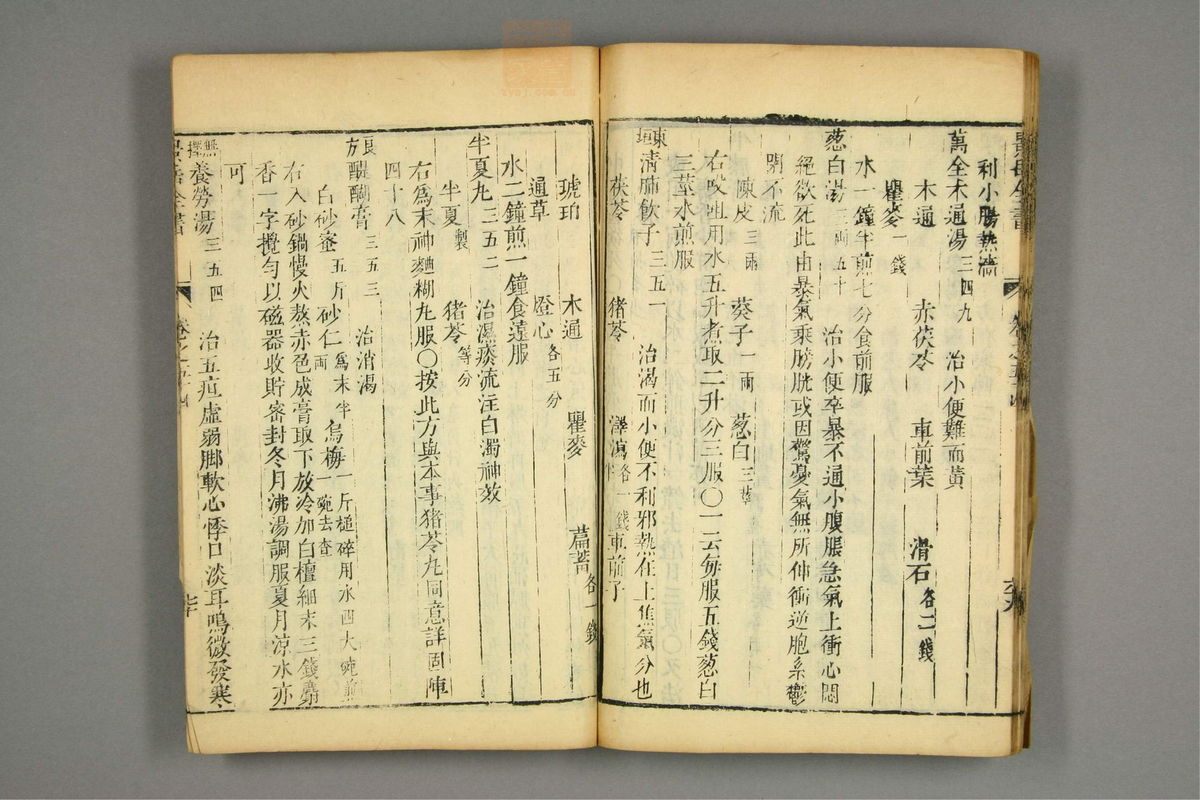 利小腸熱濇
萬全木通湯 三四九 治小便難而黃
木通 赤茯苓 車前葉 滑石 各二錢
瞿麥 一錢
水一鐘半煎七分食前服
葱白湯 三兩五十 治小便卒暴不通小腹脹急氣上衝心悶
絕欲死此由暴氣乘膀胱或因驚憂氣無所伸衝逆胞系鬱
閉不流
陳皮 三兩 葵子 一兩 葱白 三莖
右㕮咀用水五升煮取二升分三服〇一云每服五錢葱白
三莖水煎服
東垣清肺飲子 三五一 治渴而小便不利邪熱在上焦氣分也
茯苓 猪苓 澤瀉 各一錢 車前子
琥珀 木通 瞿麥 萹蓄 各一錢
通草 燈心 各五分
水二鐘煎一鐘食遠服
半夏丸 三五二 治濕痰流注白濁神效
半夏 製 猪苓 等分
右爲末神麯糊丸服〇按此方與本事猪苓丸同意詳固陣
四十八
良方醍醐膏 三五三 治消渴
白砂蜜 五斤 砂仁 爲末半兩 烏梅 一斤槌碎用水四大碗煎一碗去查
右入砂鍋慢火熬赤色成膏取下放冷加白檀細末三錢麝
香一字攪勻以磁器收貯密封冬月沸湯調服夏月涼水亦
可
無擇養勞湯 三五四 治五疸虛弱脚軟心悸口淡耳鳴微發寒
七十